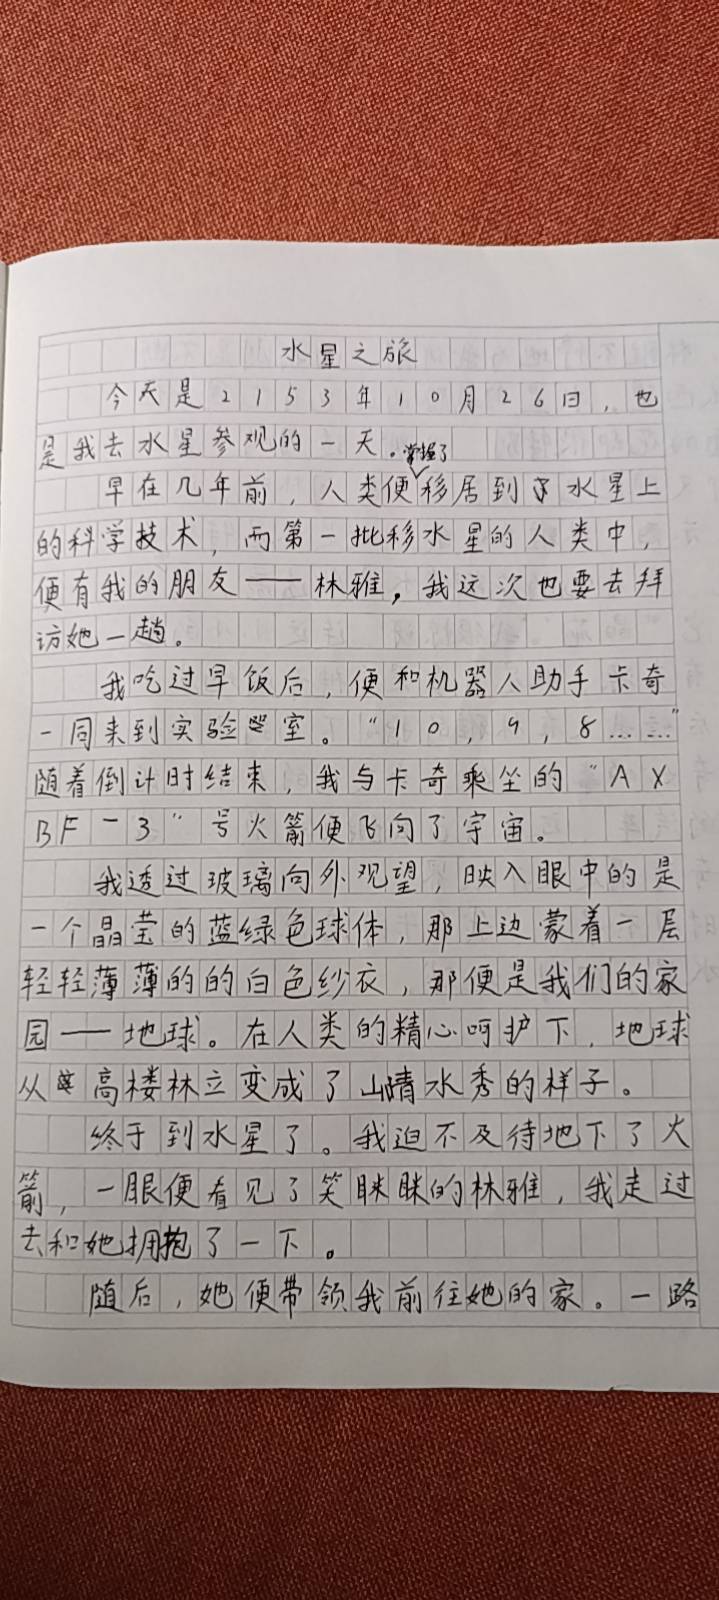 水星之旅
今天是2153年10月26日，也
是我去水星参观的一天。
掌握了
早在几年前，人类便移居到了水星上
的科学技术，而第一批移水星的人类中，
便有我的朋友——林雅，我这次也要去拜
访她一趟。
我吃过早饭后，便和机器人助手卡奇
一同来到实验室。“10，9，8……”
随着倒计时结束，我与卡奇乘坐的“AX
BF-3”号火箭便飞向了宇宙。
我透过玻璃向外观望，映入眼中的是
一个晶莹的蓝绿色球体，那上边蒙着一层
轻轻薄薄的的白色纱衣，那便是我们的家
园——地球。在人类的精心呵护下，地球
从高楼林立变成了山晴水秀的样子。
终于到水星了。我迫不及待地下了火
箭，一眼便看见了笑眯眯的林雅，我走过
去和她拥抱了一下。
随后，她便带领我前往她的家。一路